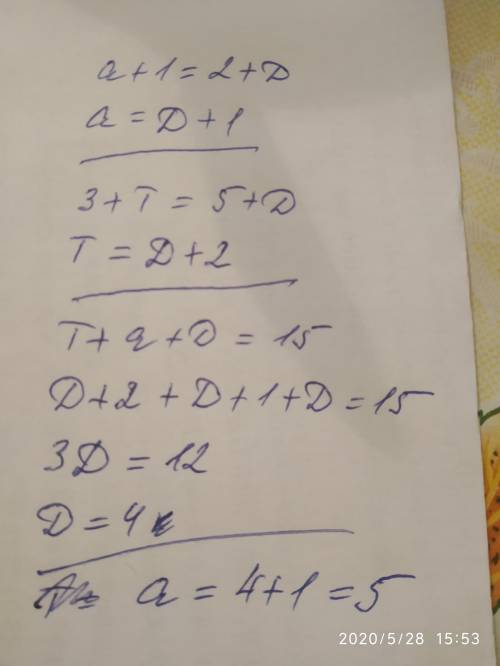 a+1=2+D
a=D+1
3+T=5+D
T=D+2
T+a+D=15
D+2+D+1+D=15
3D=12
D=4
a=4+1=5
2020/5/28 15:53